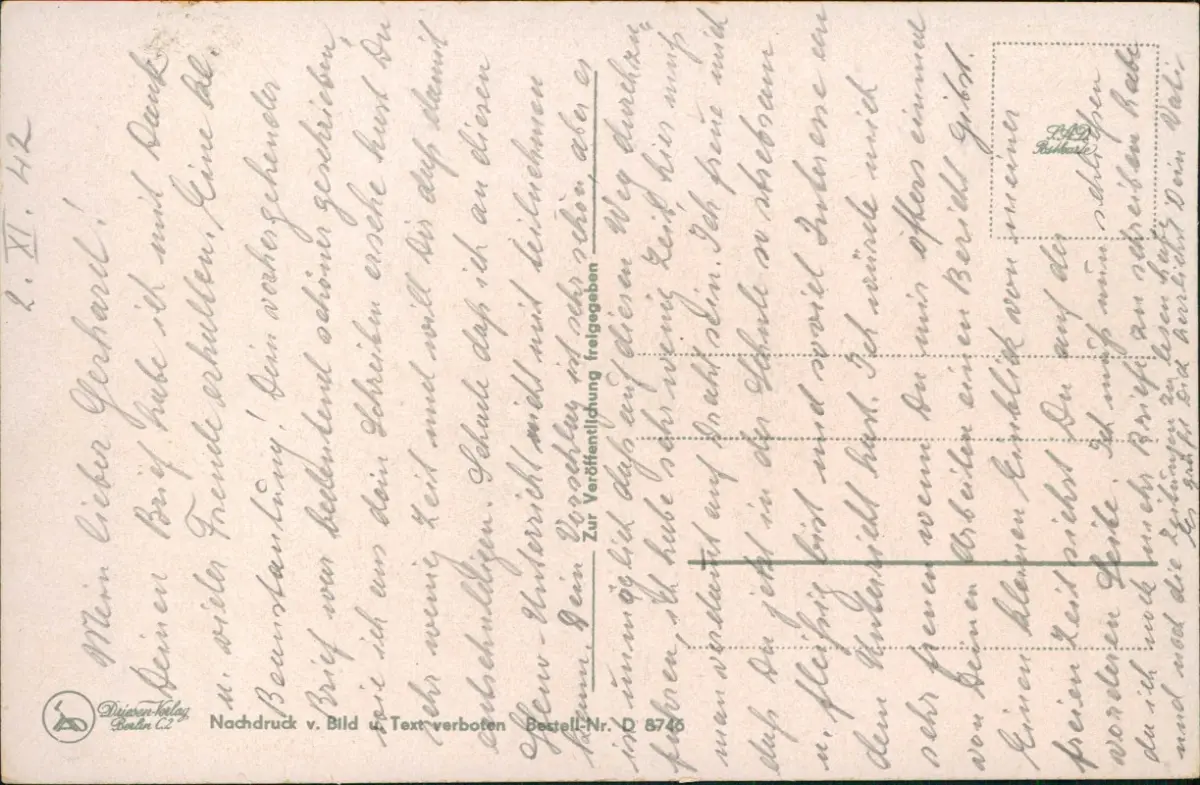 2. XI. 42
Mein lieber Gerhard!
Deinen Brief habe ich mit Dank
u. vieler Freude erhalten. Eine kl.
Beanstandung! Dein vorhergehender
Brief war bedeutend schöner geschrieben,
wie ich aus dem Schreiben ersehe hast Du
sehr wenig Zeit und will dir das damit
entschuldigen. Schade daß ich an diesen
Unterricht nicht mit teilnehmen
kann. Dein Vorschlag ist sehr schön, aber es
ist unmöglich daß auf diesen Weg durchzu=
führen, ich habe sehr wenig Zeit, hier muß
man verdammt auf Draht sein. Ich freue mich
daß Du jetzt in der Schule so strebsam
u. fleißig bist und soviel Interesse an
dem Unterricht hast. Ich würde mich
sehr freuen wenn Du mir öfters einmal
von Deinen Arbeiten einen Bericht gibst.
Einen kleinen Einblick von meiner
freien Zeit siehst Du auf der
vorderen Seite. Ich muß nun schließen
da ich noch mehr Briefe zu schreiben habe
und noch die Zeitungen zu lesen habe.
Es grüßt Dich herzlichst Dein Vati
Driesen-Verlag
Berlin C.2
Nachdruck v. Bild u. Text verboten Bestell-Nr. D 8746
Zur Veröffentlichung freigegeben
Postkarte